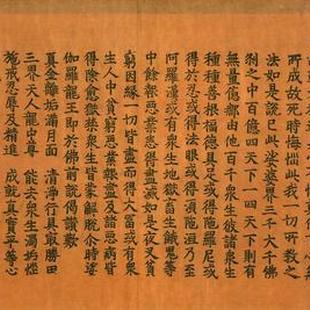 所成故死時悔惱此我一切所教之
法如是說已此娑婆界三千大千佛
剎之中百億四天下一四天下則有
無量億那由他百千衆生彼諸衆生
種種善根福德具足或得陀羅尼或
得於忍或得法眼或得須陁洹乃至
阿羅漢或有衆生地獄畜生餓鬼等
中餘報惡業悉得盡滅如是夜叉貧
窮因緣一切皆盡而得大富或有衆
生人中貧窮惡業報盡及諸惡病皆
得除愈獄禁衆生皆蒙解脫尒時娑
伽羅龍王即於佛前說偈讚歎
真金離垢滿月面　清淨行具最勝田
三界天人龍中尊　能去衆生濁垢煙
施戒忍辱及精進　成就真實平等心